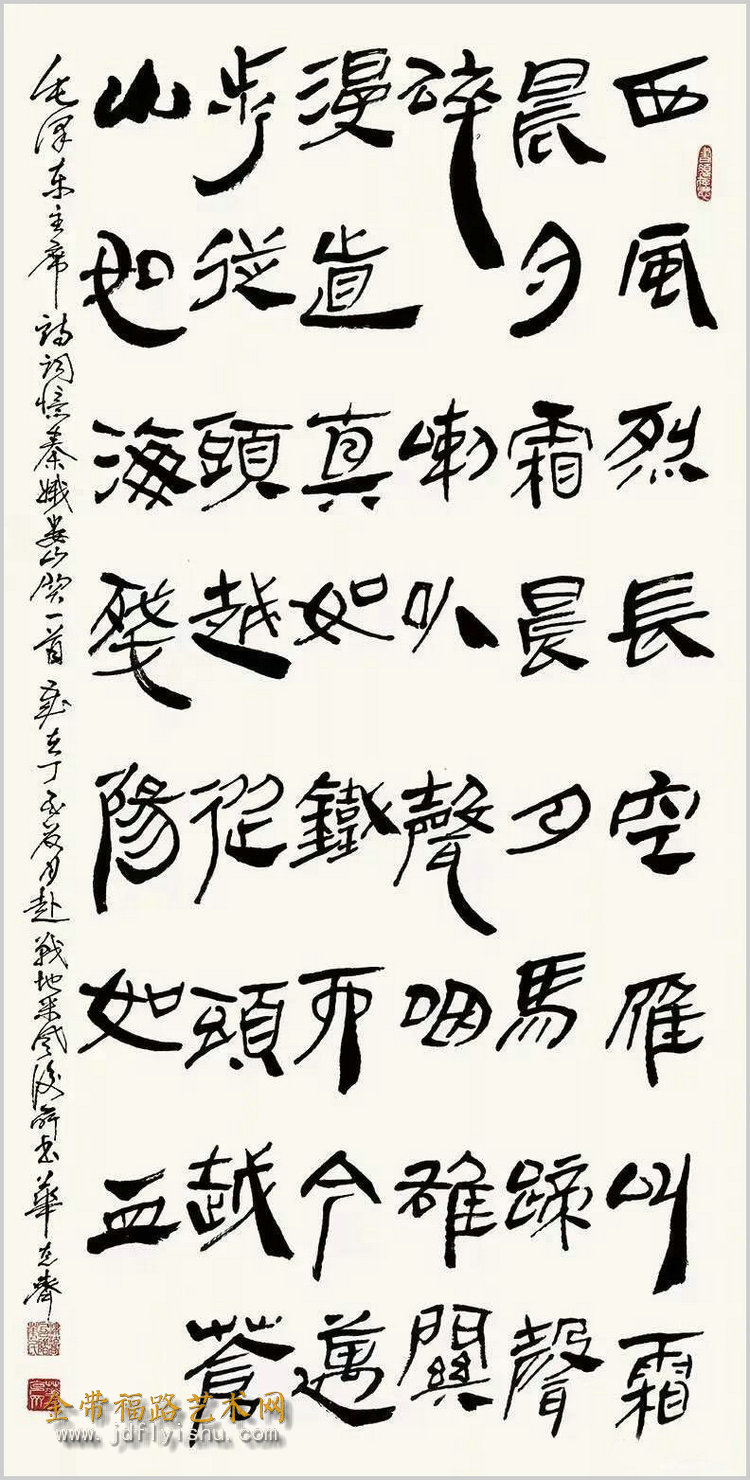 西風烈長空雁叫霜
晨月霜晨月馬蹄聲
碎喇叭聲咽雄關
漫道真如鐵而今邁
步從頭越從頭越蒼
山如海殘陽如血
毛泽东主席詩詞憶秦娥娄山関一首歲在丁亥月赴戰地采風後
金带福路艺术网
www.jdflyishu.com